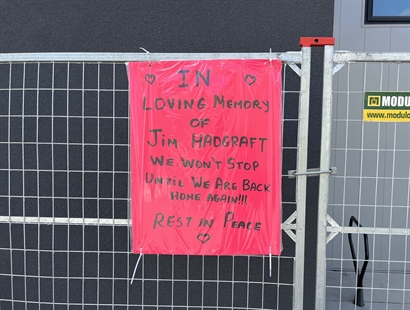 IN
LOVING MEMORY
OF
JIM HADGRAFT
WE WON'T STOP
UNTIL WE ARE BACK
HOME AGAIN!!!
REST IN PEACE
MODU
www.modulo